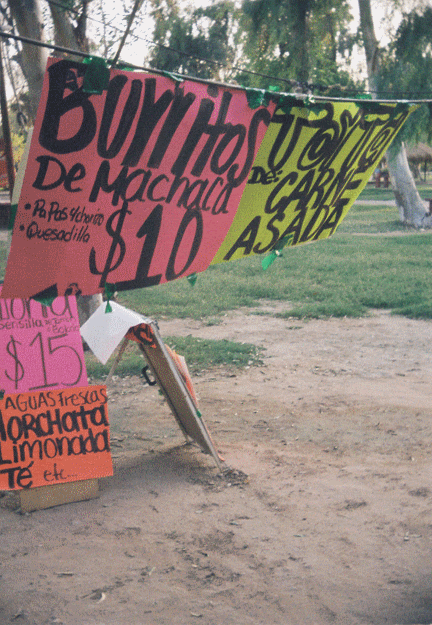 Burritos
De Machaca
• Papas y/chorizo
• Quesadilla
$10
TOSTA
DE
CARNE
ASADA
Sencilla
$15
AGUAS Frescas
HORCHATA
Limonada
Té etc...